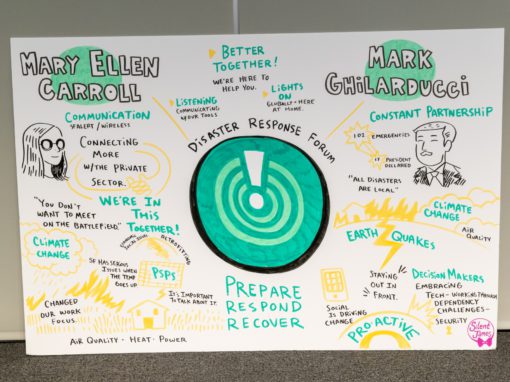 MARY ELLEN
CARROLL
COMMUNICATION
SFALERT / WIRELESS
CONNECTING
MORE
W/THE PRIVATE
SECTOR.
"YOU DON'T
WANT TO MEET
ON THE
BATTLEFIELD."
WE'RE IN
THIS
TOGETHER!
CLIMATE
CHANGE
SF HAS SERIOUS
ISSUES WHEN
THE TEMP
GOES UP
RETROFITTING
PSPS
IT'S IMPORTANT
TO TALK ABOUT IT.
CHANGED
OUR WORK
FOCUS.
AIR QUALITY • HEAT • POWER
BETTER
TOGETHER!
WE'RE HERE TO
HELP YOU.
LISTENING
COMMUNICATING
W/YOUR TOOLS
LIGHTS
ON
GLOBALLY + HERE
AT HOME.
DISASTER RESPONSE FORUM
!
PREPARE
RESPOND
RECOVER
MARK
GHILARDUCCI
CONSTANT PARTNERSHIP
101 EMERGENCIES
17 PRESIDENT
DECLARED
"ALL DISASTERS
ARE LOCAL"
CLIMATE
CHANGE
AIR
QUALITY
EARTH QUAKES
STAYING
OUT IN
FRONT.
SOCIAL
IS DRIVING
CHANGE
PROACTIVE
DECISION MAKERS
EMBRACING
TECH - WORKING THROUGH
DEPENDENCY
CHALLENGES -
SECURITY
Silent
James